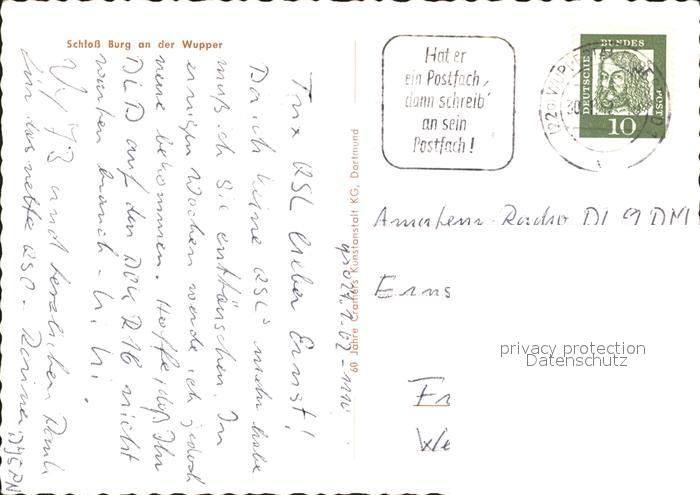 Schloß Burg an der Wupper
Tnx QSL lieber Ernst!
Da ich keine QSL's mehr habe
muß ich Sie enttäuschen. In
einigen Wochen werde ich jedoch
neue bekommen. Hoffe, daß Ihr
DLD auf den DOK R16 nicht
warten brauch - hi hi.
Vy 73 und herzlichen Dank
für das nette QSO -
60 Jahre Cramers Kunstanstalt KG, Dortmund
Hat er
ein Postfach,
dann schreib'
an sein
Postfach!
DEUTSCHE BUNDESPOST
10
Amateur-Radio DL 9 DM
Erns
privacy protection
Datenschutz
Fr
We